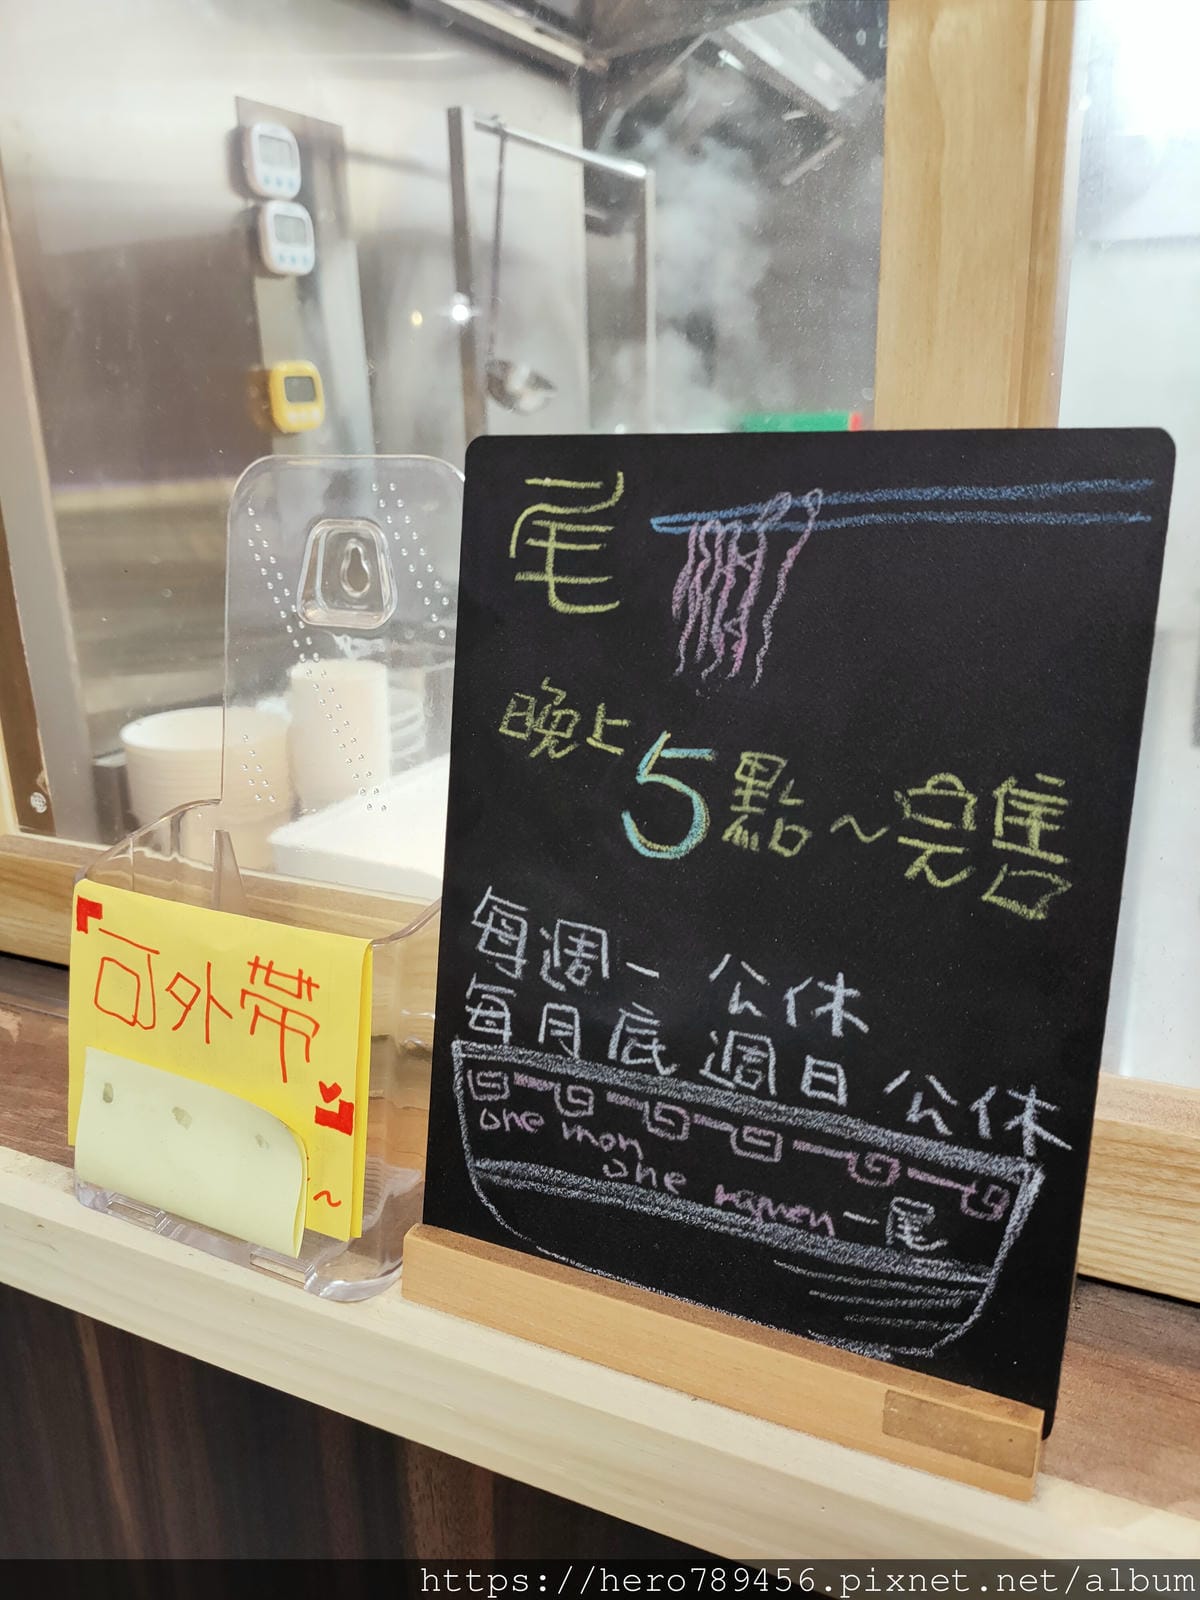 尾
晚上5點~完售
每週一 公休
每月底 週日 公休
one man
one ramen 一尾
「可外帶」
~
https://hero789456.pixnet.net/album